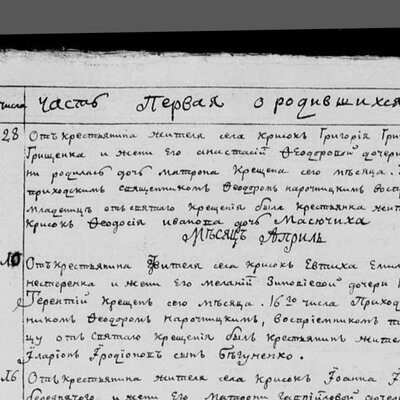 числа Часть Первая о родившихся
28 Отъ крестьянина жителя села Крисокъ Григорія Гри
Грищенка и жени Его Анастасіи Ѳеодоровой дочери
ни родилась дочь Матрона Крещена сего мѣсяца
приходскимъ священникомъ Ѳеодоромъ Нарочицкимъ воспр
младенцу отъ святаго крещенія была крестьянка жит
Крисокъ Ѳеодосія Иванова дочь Масючиха
Мѣсяцъ Априль
10 Отъ Крестьянина Жителя села Крисокъ Евтиха Емил
Нестеренка и жени Его Меланіи Зиновіевой дочери
Терентій Крещенъ сего мѣсяца 16го числа Приход
никомъ Ѳеодоромъ Нарочицкимъ, воспріемникомъ
цу отъ святаго Крещенія былъ Крестьянин жите
Иларіонъ Иродіоновъ сынъ Бѣгуненко.
16 Отъ Крестьянина жителя села Крисокъ Іоанна
и жени Его Матрони